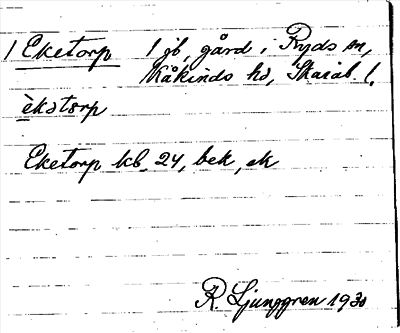 1 Eketorp 1 jb, gård i Ryds sn,
Kåkinds hd, Skarab. l.
èkətɔrp
Eketorp kb. 24, bek, ek
R. Ljunggren 1930